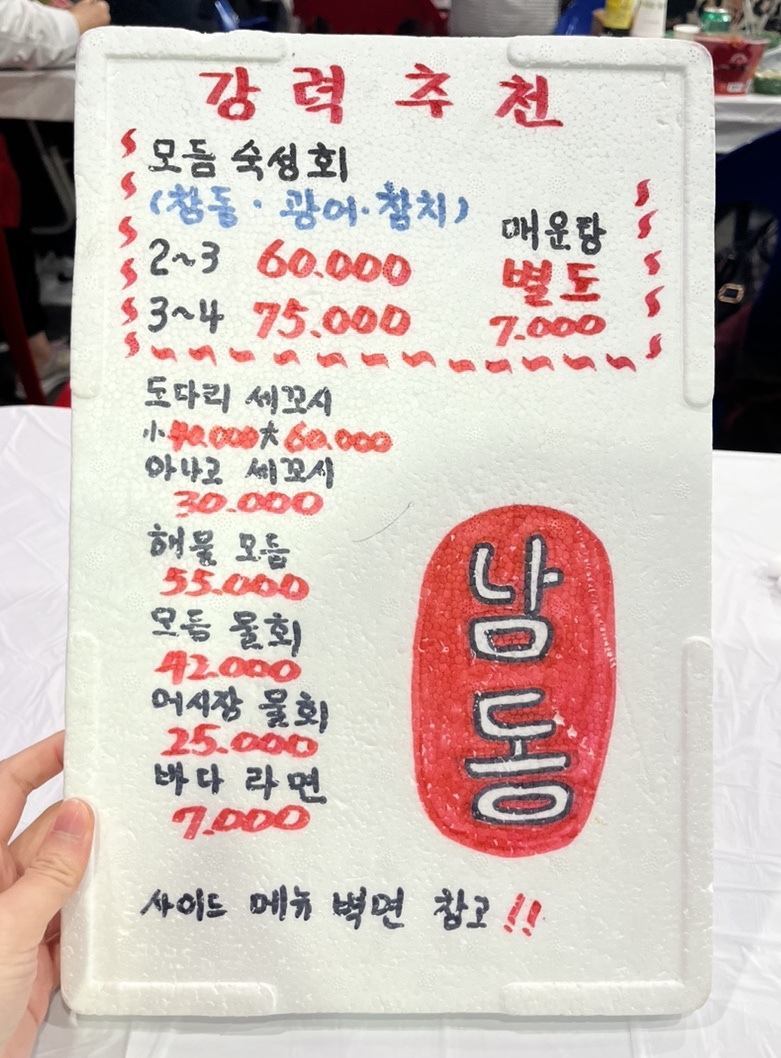 강력추천
모듬 숙성회
(참돔·광어·참치)
2~3 60.000
3~4 75.000
매운탕
별도
7.000
도다리 세꼬시
小 40.000 大 60.000
아나고 세꼬시
30.000
해물 모듬
55.000
모듬 물회
42.000
어시장 물회
25.000
바다 라면
7.000
남동
사이드 메뉴 벽면 참고!!